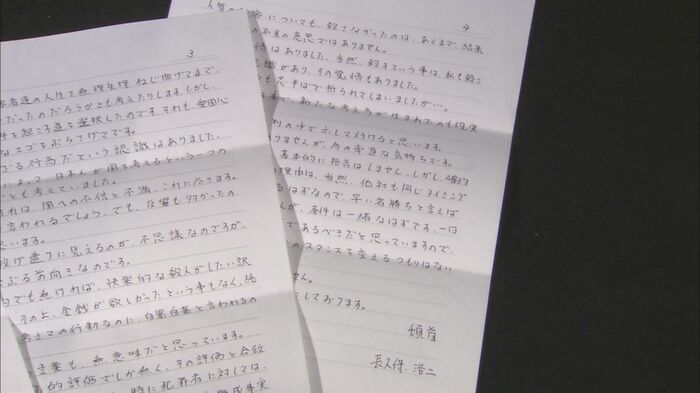 3
害者達の人生を無理矢理ねじ曲げてまで、
だったのだろうかとも考えたりします。しかし、
件を起こす道を選択したのです。それも、愛国心
なエゴをぶらさげてです。
ざる行為だという認識はありました。
よって、日本人が国を考えるという一つの
とも考えていました。
れは、国への不信と不満、これに尽きます。
言われるでしょう。でも、反響も多かったの
ています。
投げ遣りに見えるのが、不思議なのですが、
ぶる前向きなのです。
者でも無ければ、快楽的な殺人がしたい訳
その上、金銭が欲しかったという事もなく、純
考えての行動なのに、自暴自棄と言われるの
言葉も、無意味だと思っています。
的評価でしか無く、その評価と合致
時に犯罪者に対しては、
4
人質の
についても、殺さなかったのは、あくまで、結果
の本来の意思ではありません。
はありました。当然、殺すという事は、私も殺さ
識があり、その覚悟もありました。
も志半ばで折られてしまいましたが…。
新たな考えが生まれてのも現実
判の中で示して行けると思います。
りませんが、今の率直な気持ちです。
基本的に拒否はしません。しかし、確約
理由は、当然、他社も同じタイミング
るはずなので、早い者勝ちと言えば
が、条件は一緒なはずです。一日
であるべきだと思っていますので、
のスタンスを変えるつもりはない
せん。
しております。
頓首
長久保 浩二